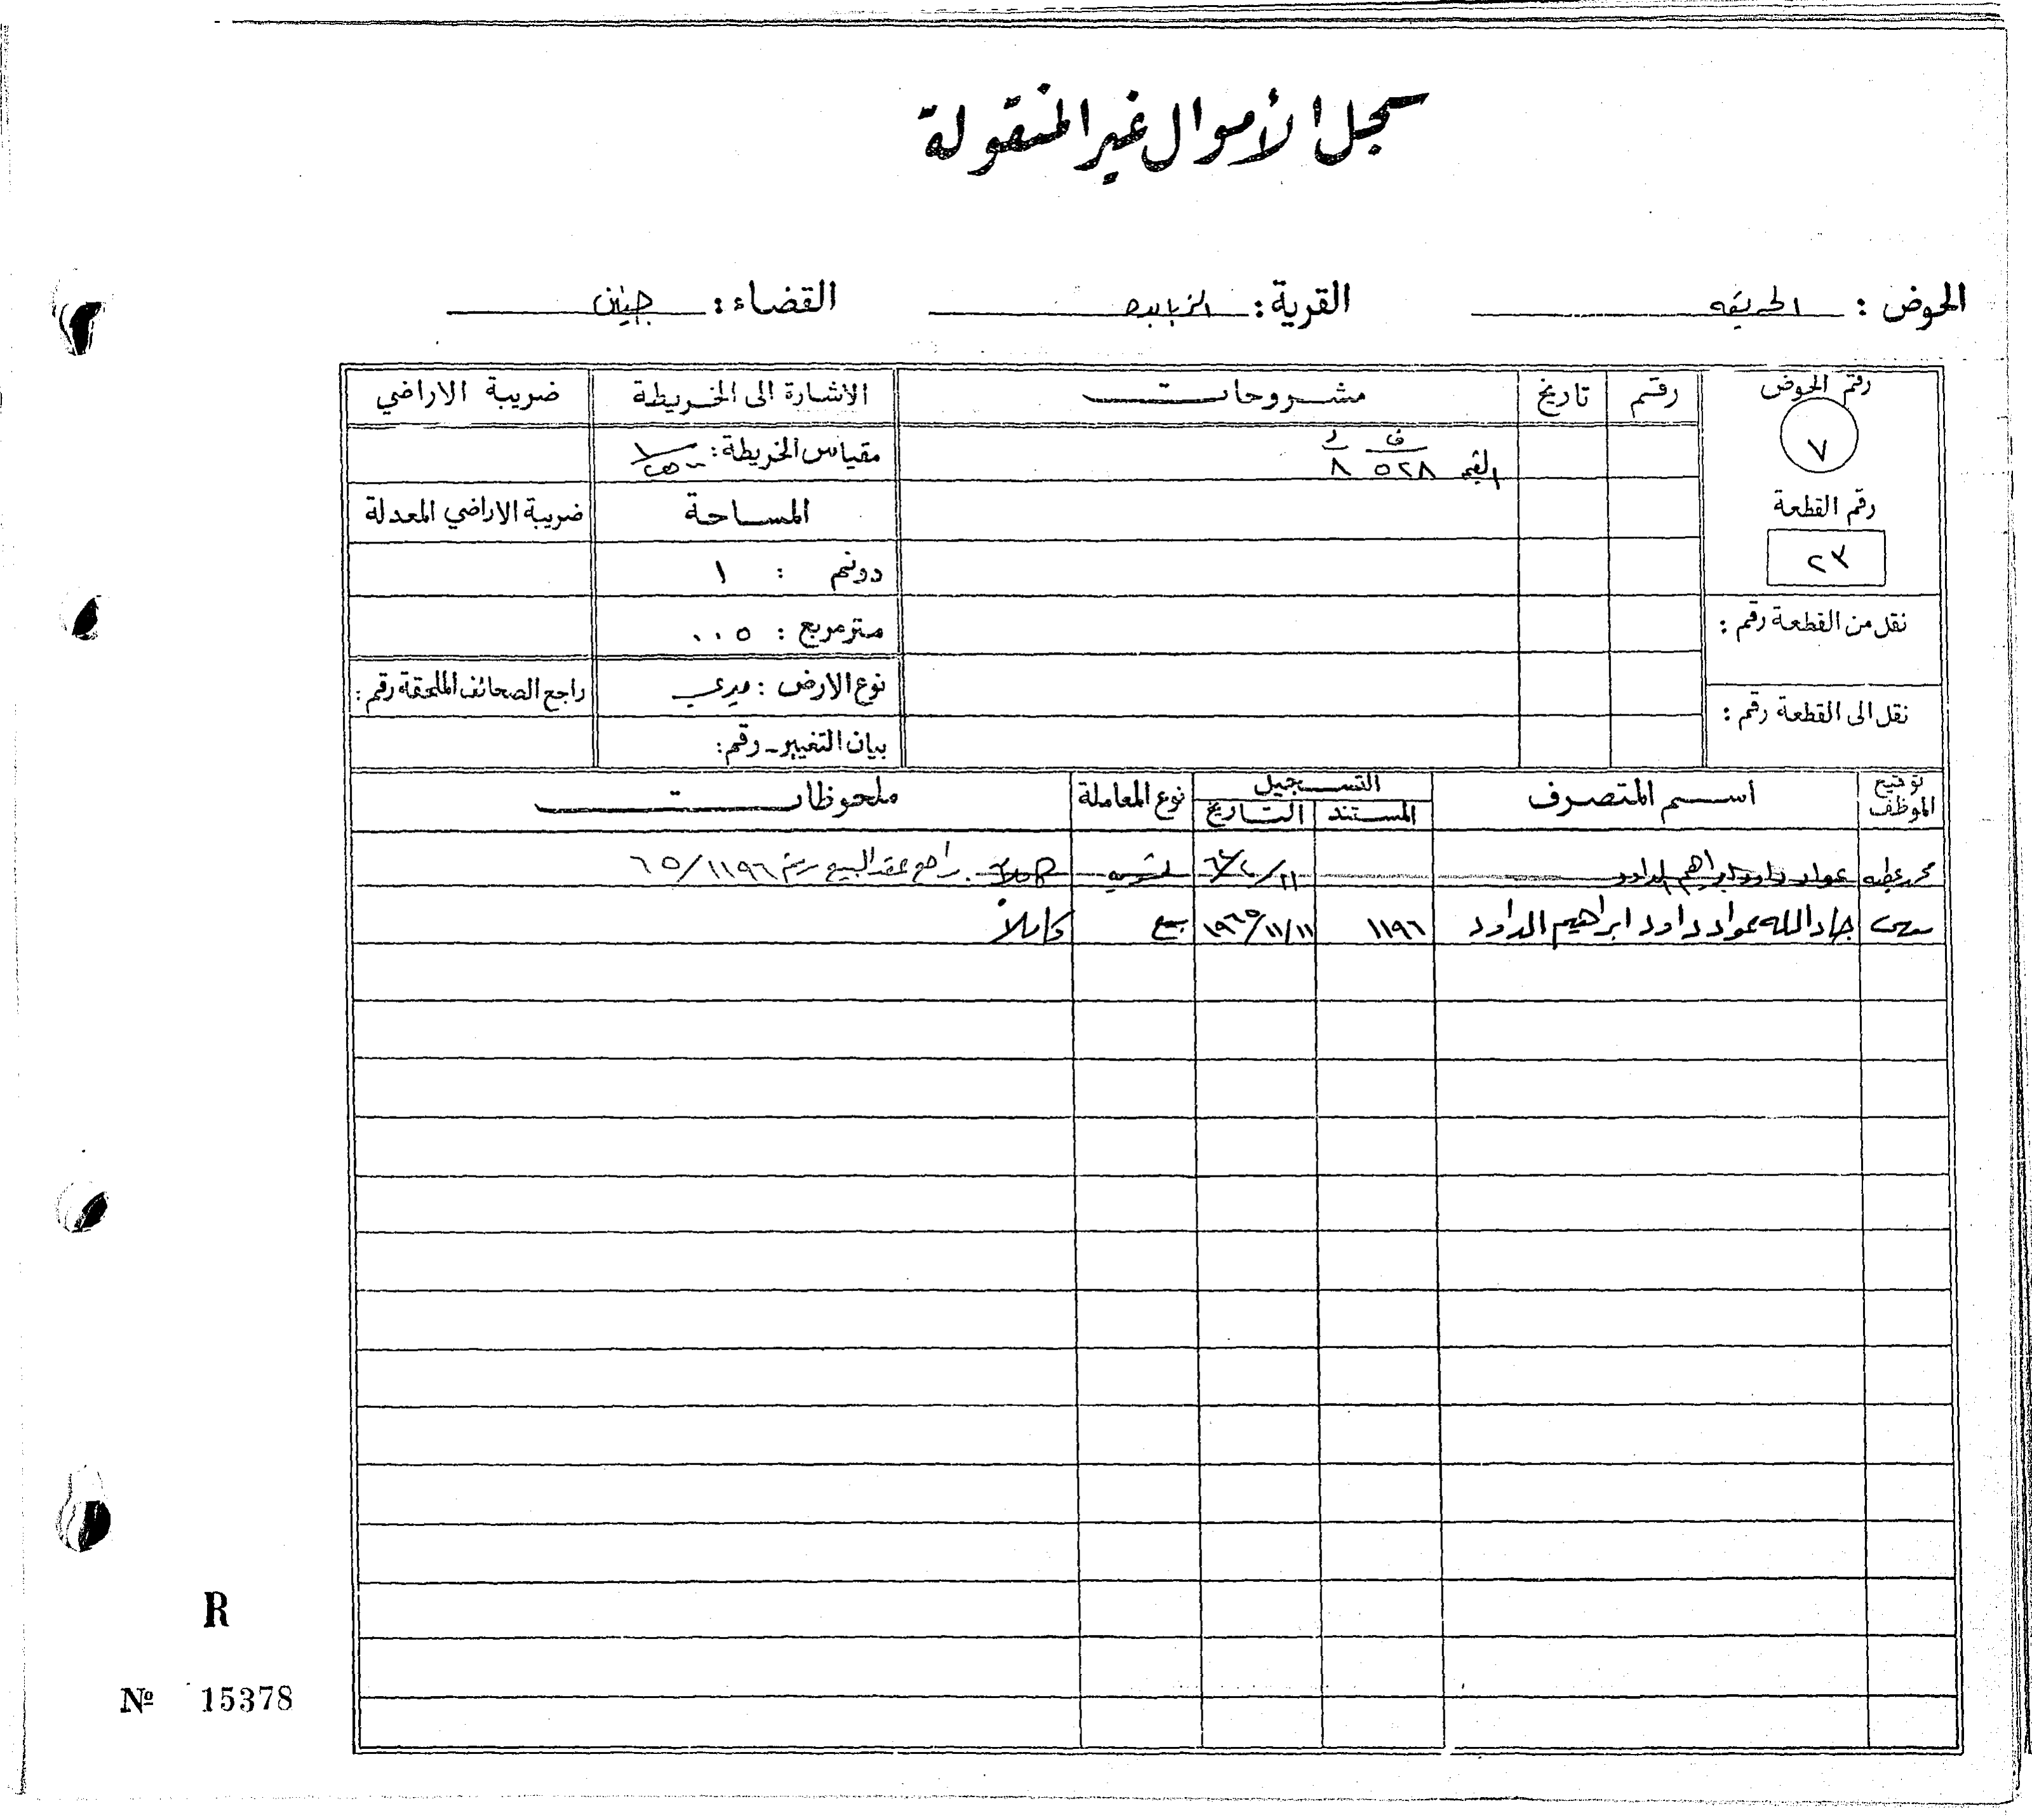 سجل الأموال غير المنقولة
الحوض : الحريقه القرية : الزبابده القضاء : جنين
رقم الحوض رقم تاريخ مشروحات الاشارة الى الخريطة ضريبة الاراضي
٧
ف د
القيمه ٥٢٨ ٨
مقياس الخريطة :
رقم القطعة المساحة ضريبة الاراضي المعدلة
٢٣ دونم : ١
نقل من القطعة رقم : متر مربع : ٠٠٥
نوع الارض : ميري راجع الصحائف الملحقة رقم :
نقل الى القطعة رقم : بيان التغيير - رقم :
توقيع الموظف اسم المتصرف التسجيل نوع المعاملة ملحوظات
المستند التاريخ
عواد داود ابراهيم الداود تسويه كاملا راجع عقد البيع رقم ٦٥/١١٩٦
جاد الله عواد داود ابراهيم الداود ١١٩٦ ١٩٦٥/١١/١١ بيع كاملاً
R
Nº 15378